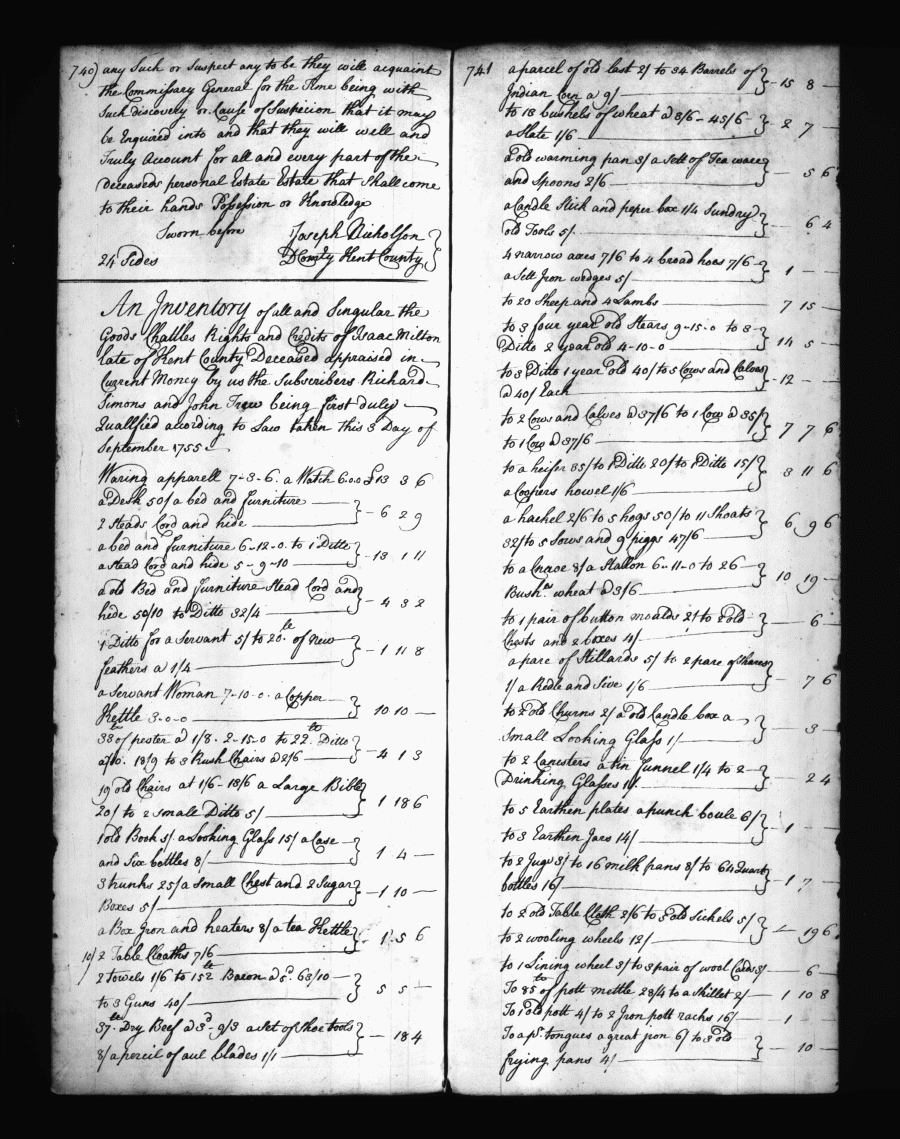 740) any Such or Suspect any to be they will acquaint
the Commissary General for the Time being with
Such discovery or Cause of Suspecion that it may
be Enquired into and that they will well and
Truly Account for all and every part of the
deceaseds personal Estate Estate that Shall come
to their hands Possession or Knowledge
Sworn before Joseph Nicholson
24 Sides DComty Kent County
An Inventory of all and Singular the
Goods Chattles Rights and Credits of Isaac Milton
late of Kent County Deceased appraised in
Current Money by us the Subscribers Richard
Simons and John Trew being first duly
Quallified acording to Law taken this 3 Day of
September 1755
Waring apparell 7-3-6. a Watch 6.0.0 £13 3 6
a Desk 50/ a bed and furniture
2 Steads Cord and hide 6 2 9
a bed and furniture 6-12-0. to 1 Ditto
a Stead Cord and hide 5-9-10 13 1 11
a old Bed and furniture Stead Cord and
hide 50/10 to Ditto 32/4 4 3 2
1 Ditto for a Servant 5/ to 20 le of new
feathers a 1/4 1 11 8
a Servant Woman 7-10-0. a Copper
Kettle 3-0-0 10 10 —
38 of pester a 1/8. 2-15-0 to 22 lb Ditto
a /10. 18/9 to 3 Rush Chairs a 2/6 4 1 3
19 old Chairs at 1/6-18/6 a Large Bible
20/ to 2 Small Ditto 5/ 1 18 6
1 old Book 5/ a Looking Glass 15/ a Case
and Six bottles 8/ 1 4 —
3 trunks 25/ a Small Chest and 2 Sugar
Boxes 5/ 1 10 —
a Box Iron and heaters 8/ a tea Kettle
10/ 2 Table Cloaths 7/6 1 5 6
2 Towels 1/6 to 152 lb Bacon a 5d. 63/10
to 3 Guns 40/ 5 5 —
37 lb Dry Beef a 3d. 9/3 a Set of Shoe tools
8/ a porcil of aul blades 1/1 18 4
741 a parcel of old last 2/ to 34 Barrels of
Indian Corn a 9/ 15 8 —
to 18 bushels of wheat a 2/6-45/6
a Slate 1/6 2 7 —
a old warming pan 3/ a Sett of Tea ware
and Spoons 2/6 5 6
a Candle Stick and peper box 1/4 Sundry
old Tools 5/ 6 4
4 narrow axes 7/6 to 4 broad hoes 7/6
a Sett Iron wedges 5/ 1 —
to 20 Sheep and 4 Lambs 7 15 —
to 3 four year old Stears 9-15-0 to 3
Ditto 2 year old 4-10-0 14 5 —
to 3 Ditto 1 year old 40/ to 5 Cows and Calves
a 40/ Each 12 —
to 2 Cows and Calves a 37/6 to 1 Cow a 35/
to 1 Cow a 37/6 7 7 6
to a heifer 35/ to 1 Ditto 20/ to 1 Ditto 15/
a Coopers howel 1/6 3 11 6
a hachel 2/6 to 5 hogs 50/ to 11 Shoats
32/ to 5 Sows and 9 piggs 47/6 6 9 6
to a Cnoe 8/ a Stallon 6-11-0 to 26
Bush. wheat a 3/6 10 19 —
to 1 pair of button moulds 2/ to 2 old
Chests and 2 boxes 4/ 6 —
a pare of Stillards 5/ to 2 pare of Shares
1/ a Redle and Sive 1/6 7 6
to 2 old Churns 2/ a old Candle box a
Small Looking Glass 1/ 3 —
to 2 Canisters a tin funnel 1/4 to 2
Drinking Glasses 1/ 2 4
to 5 Earthen plates a punch boule 6/
to 3 Earthen Jars 14/ 1 —
to 2 Jugs 3/ to 16 milk pans 8/ to 64 Quart
bottles 16/ 1 7 —
to 2 old Table Cloth 2/6 to 5 old Sickels 5/
to 2 wooling wheels 12/ 19 6
to 1 Lining wheel 3/ to 3 pair of wool Cards 3/ 6 —
To 85 lb of pott mettle 28/4 to a Skillet 2/ 1 10 8
To 1 old pott 4/ to 2 Iron pott racks 16/ 1 —
To a pr. tongues a great iron 6/ to 3 old
frying pans 4/ 10 —